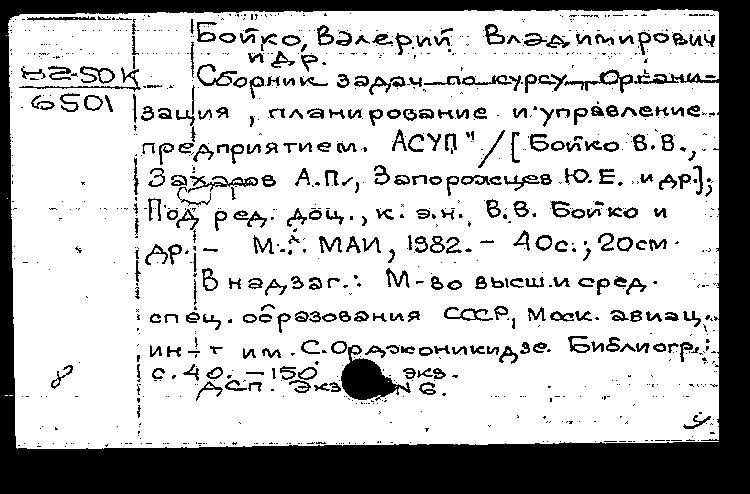 Бойко, Валерий Владимирович
и др.
Н2-50К
6501
Сборник задач по курсу „Органи-
зация, планирование и управление
предприятием. АСУП" / [Бойко В.В.,
Захаров А.П., Запорожцев Ю.Е. и др.];
Под ред. доц., к. э. н., В.В. Бойко и
др. – М.: МАИ, 1982. – 40с.; 20см.
В надзаг.: М-во высш. и сред.
спец. образования СССР, Моск. авиац.
ин-т им. С. Орджоникидзе. Библиогр.:
с. 40. – 150 экз.
ДСП. Экз N 6.